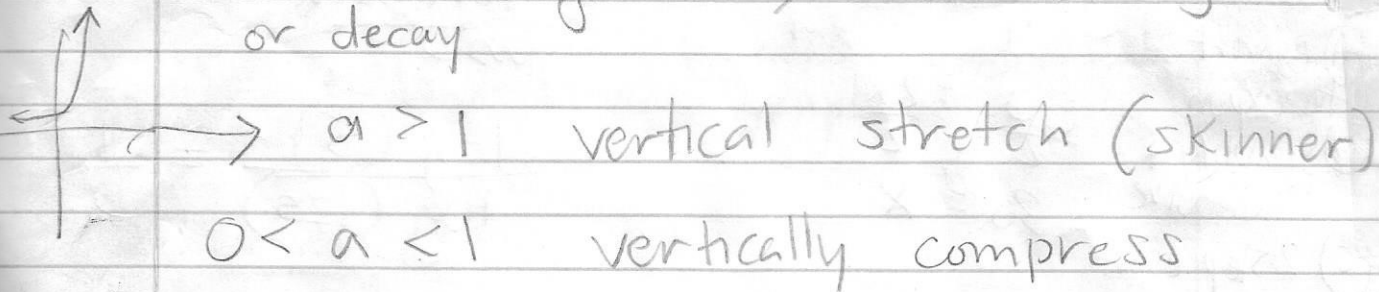 or decay
a > 1 vertical stretch (skinner)
0 < a < 1 vertically compress